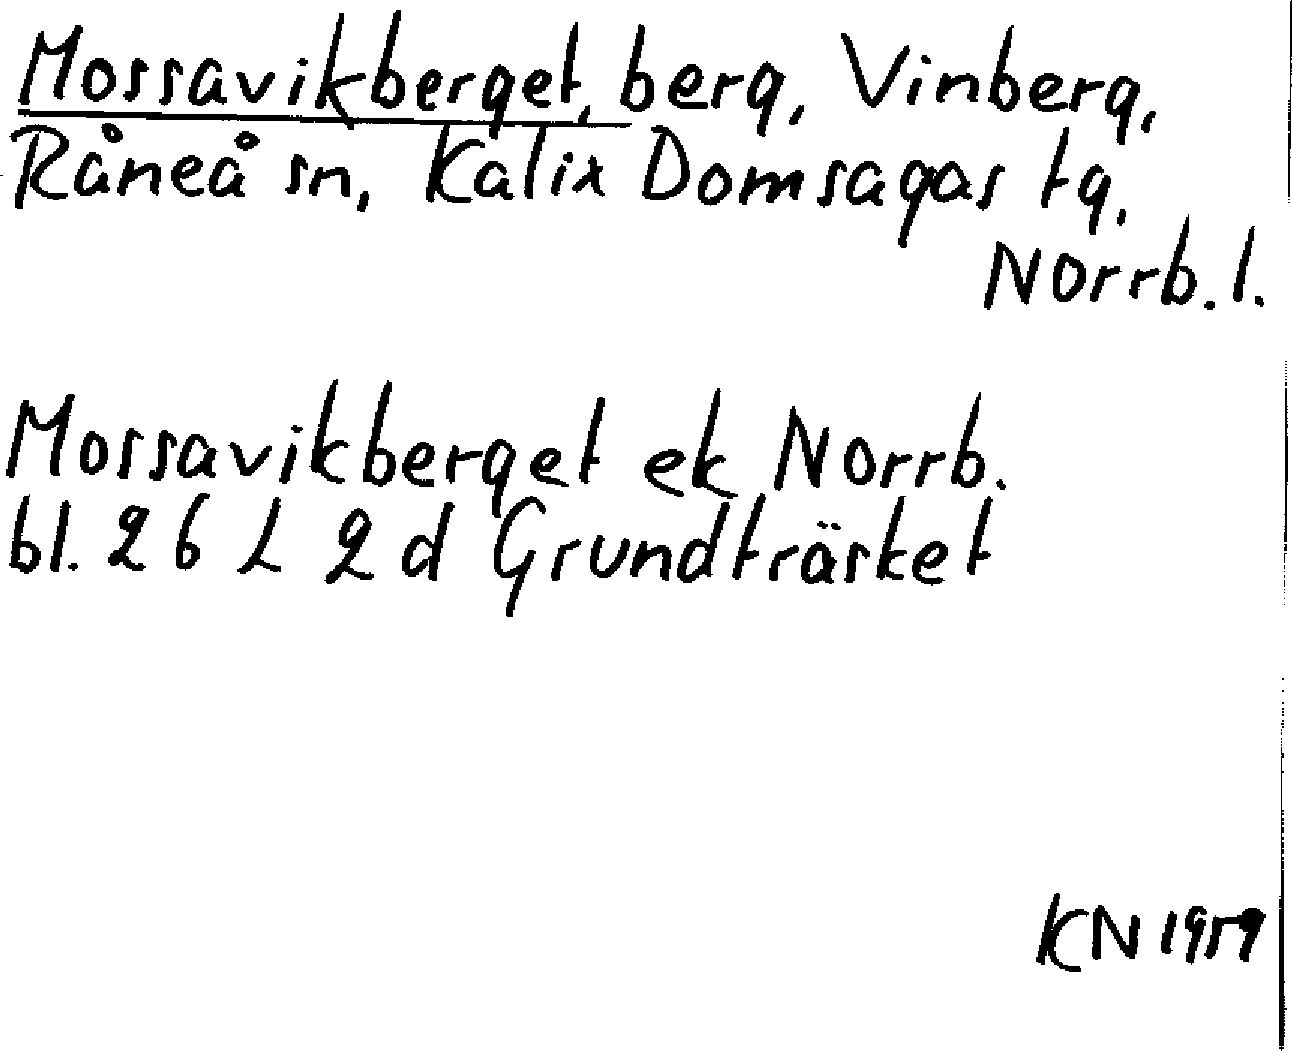 Mossavikberget, berg, Vinberg,
Råneå sn, Kalix Domsagas tg,
Norrb. l.
Mossavikberget ek Norrb.
bl. 26 L 2 d Grundträsket
KN 1959